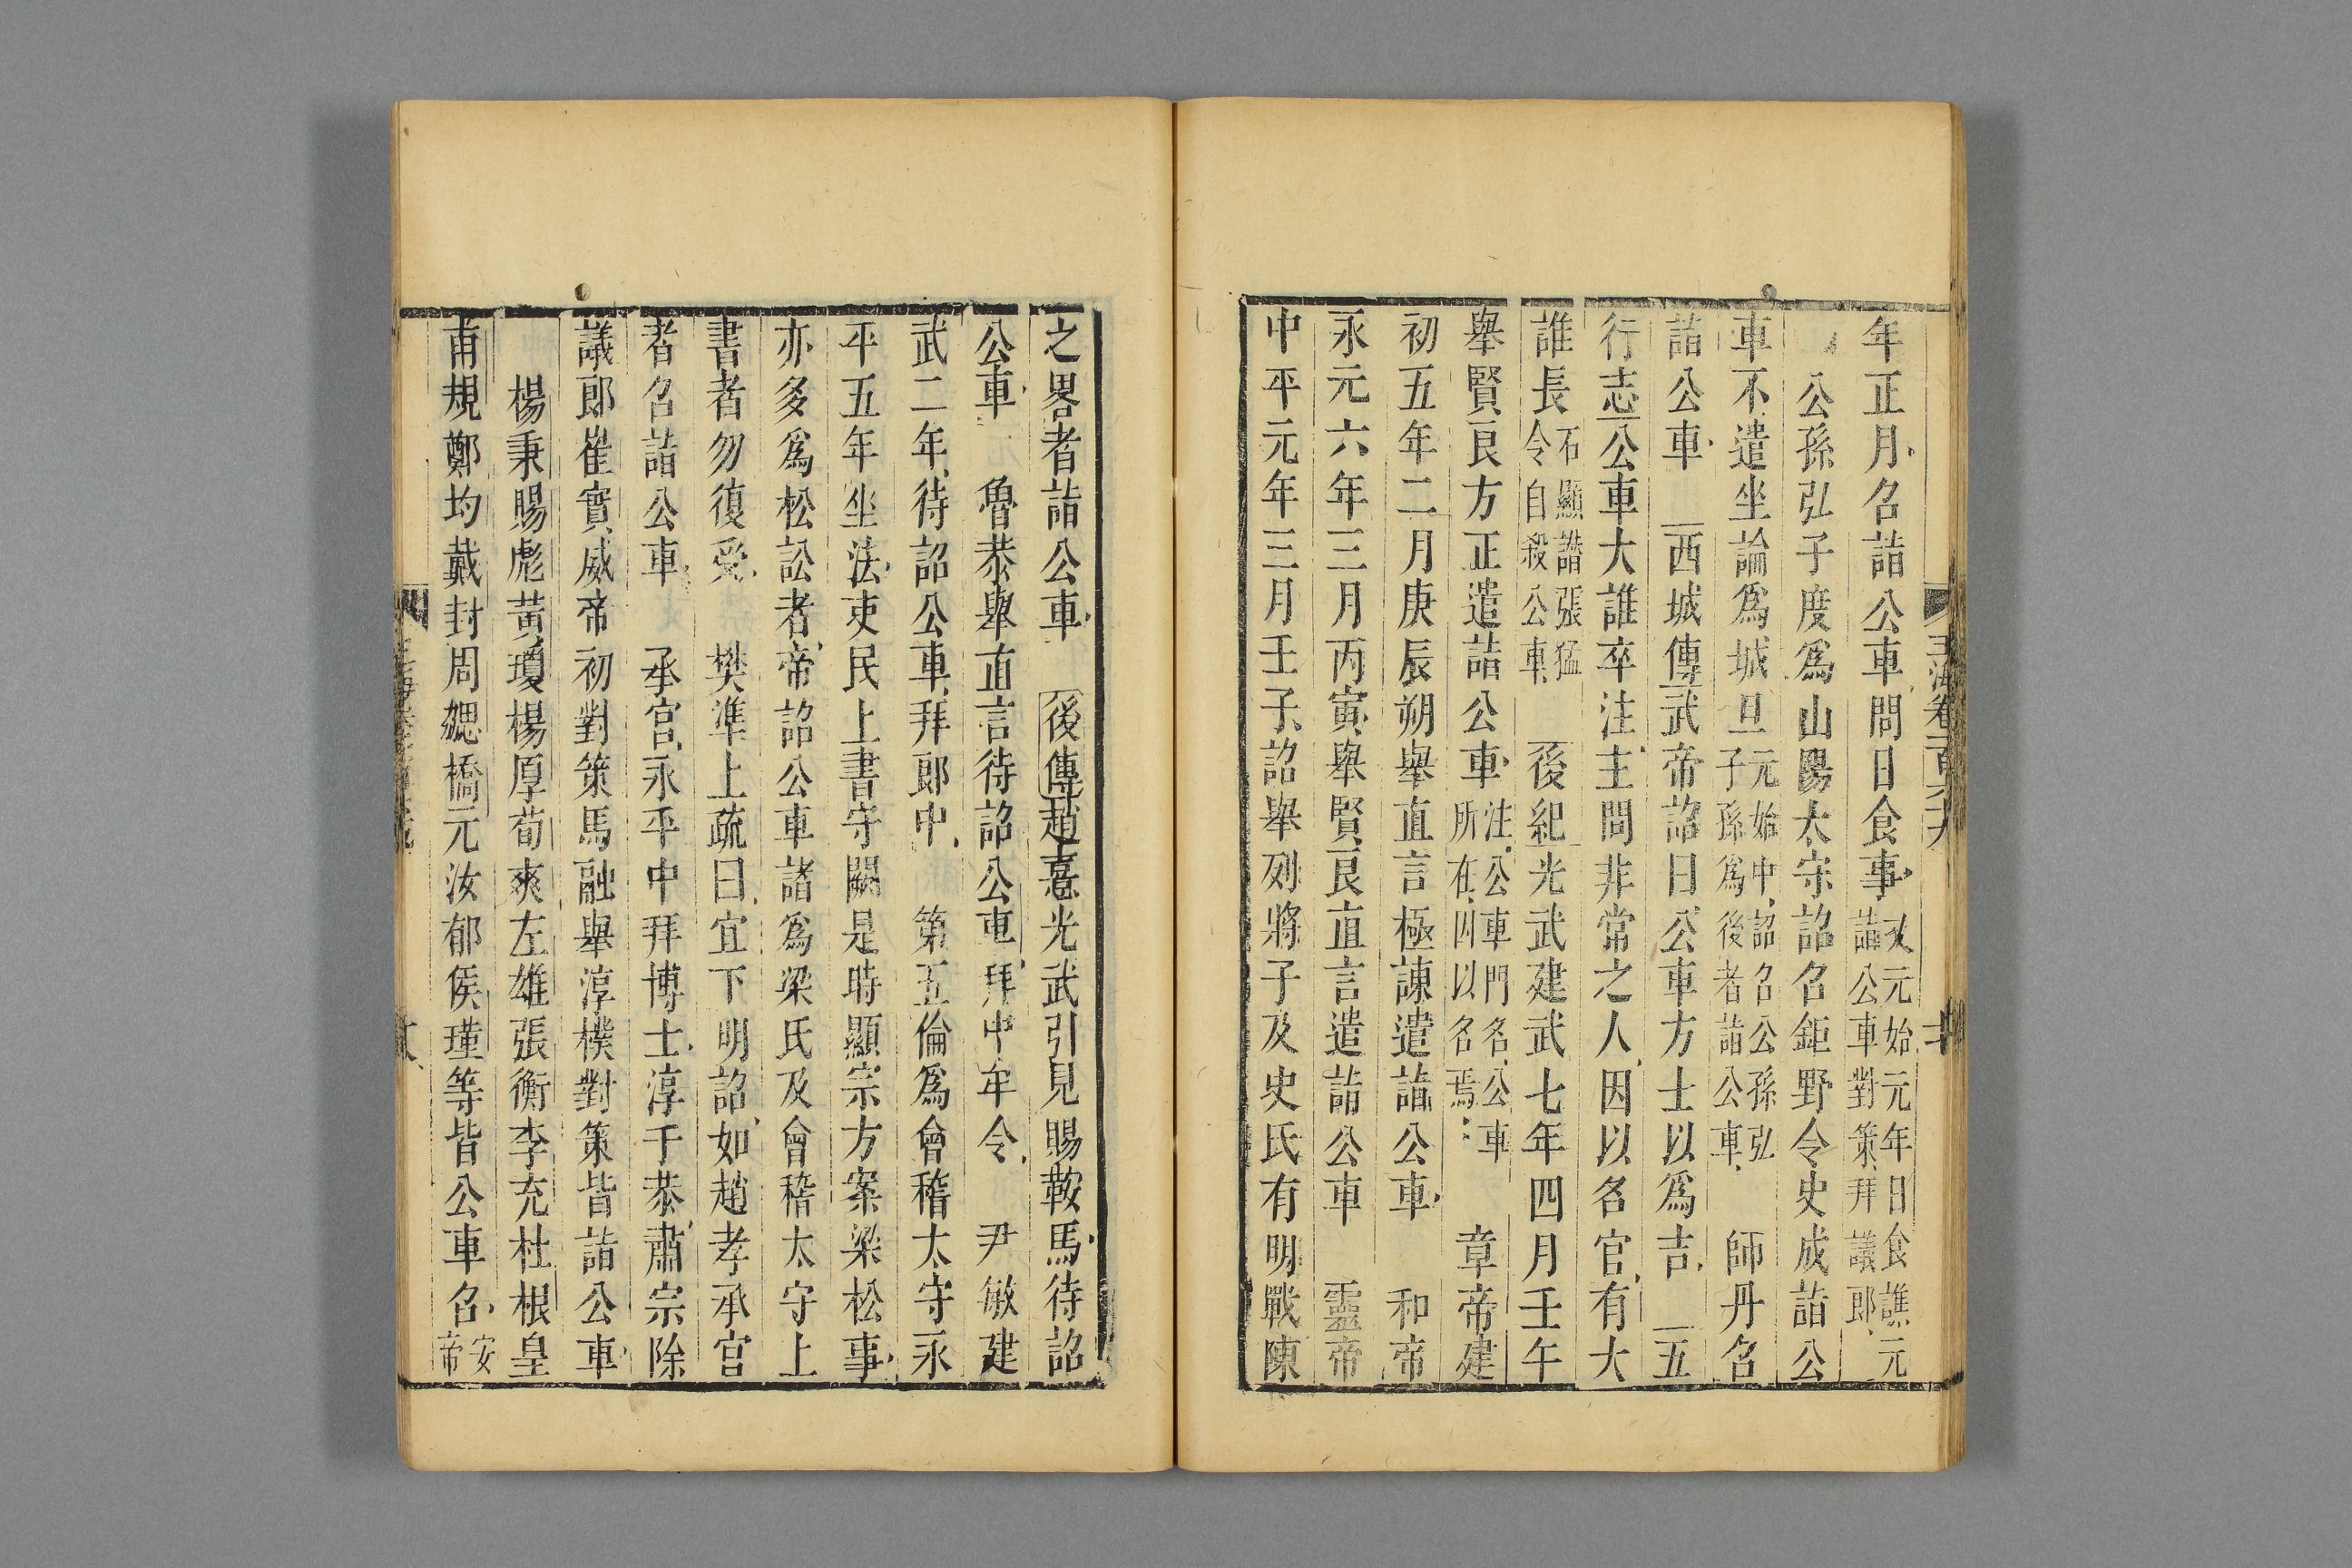 玉海卷一百六九
年正月召詣公車問日食事又元始元年日食譙元詣公車對策拜議郎
公孫弘子度爲山陽太守詔召鉅野令史成詣公
車不遣坐論爲城旦元始中詔召公孫弘子孫爲後者詣公車 師丹召
詣公車 西域傳武帝詔曰公車方士以爲吉 五
行志公車大誰卒注主問非常之人因以名官有大
誰長石顯譖張猛令自殺公車 後紀光武建武七年四月壬午
舉賢良方正遣詣公車注公車門名公車所在因以名焉 章帝建
初五年二月庚辰朔舉直言極諫遣詣公車 和帝
永元六年三月丙寅舉賢良直言遣詣公車 靈帝
中平元年三月壬子詔舉列將子及吏氏有明戰陳
之畧者詣公車 後傳趙憙光武引見賜鞍馬待詔
公車 魯恭舉直言待詔公車拜中牟令 尹敏建
武二年待詔公車拜郎中 第五倫爲會稽太守永
平五年坐法吏民上書守闕是時顯宗方案梁松事
亦多爲松訟者帝詔公車諸爲梁氏及會稽太守上
書者勿復受 樊準上疏曰宜下明詔如趙孝承宮
者召詣公車 承宮永平中拜博士淳于恭肅宗除
議郎崔寔威帝初對策馬融舉淳樸對策皆詣公車
楊秉賜彪黃瓊楊厚荀爽左雄張衡李充杜根皇
甫規鄭均戴封周勰橋元汝郁侯瑾等皆公車召安帝